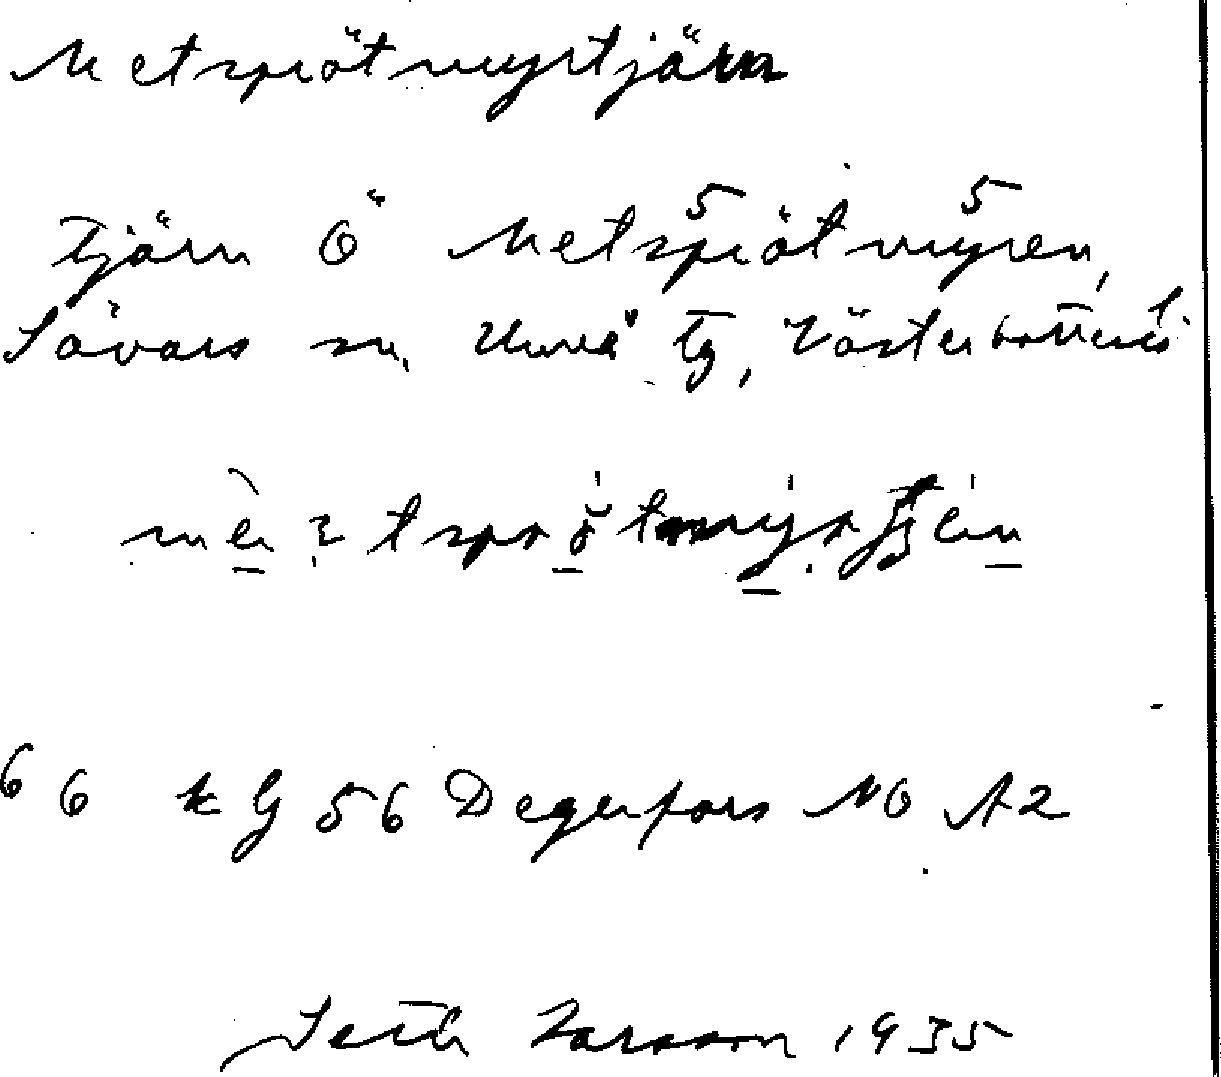 Metspiötmyrtjärn
Tjärn Ö Metspiötmyren,
Sävars sn, Umeå tg, Västerbottens l.
66 kG 56 Degerfors NO A2
Seth Larsson 1935